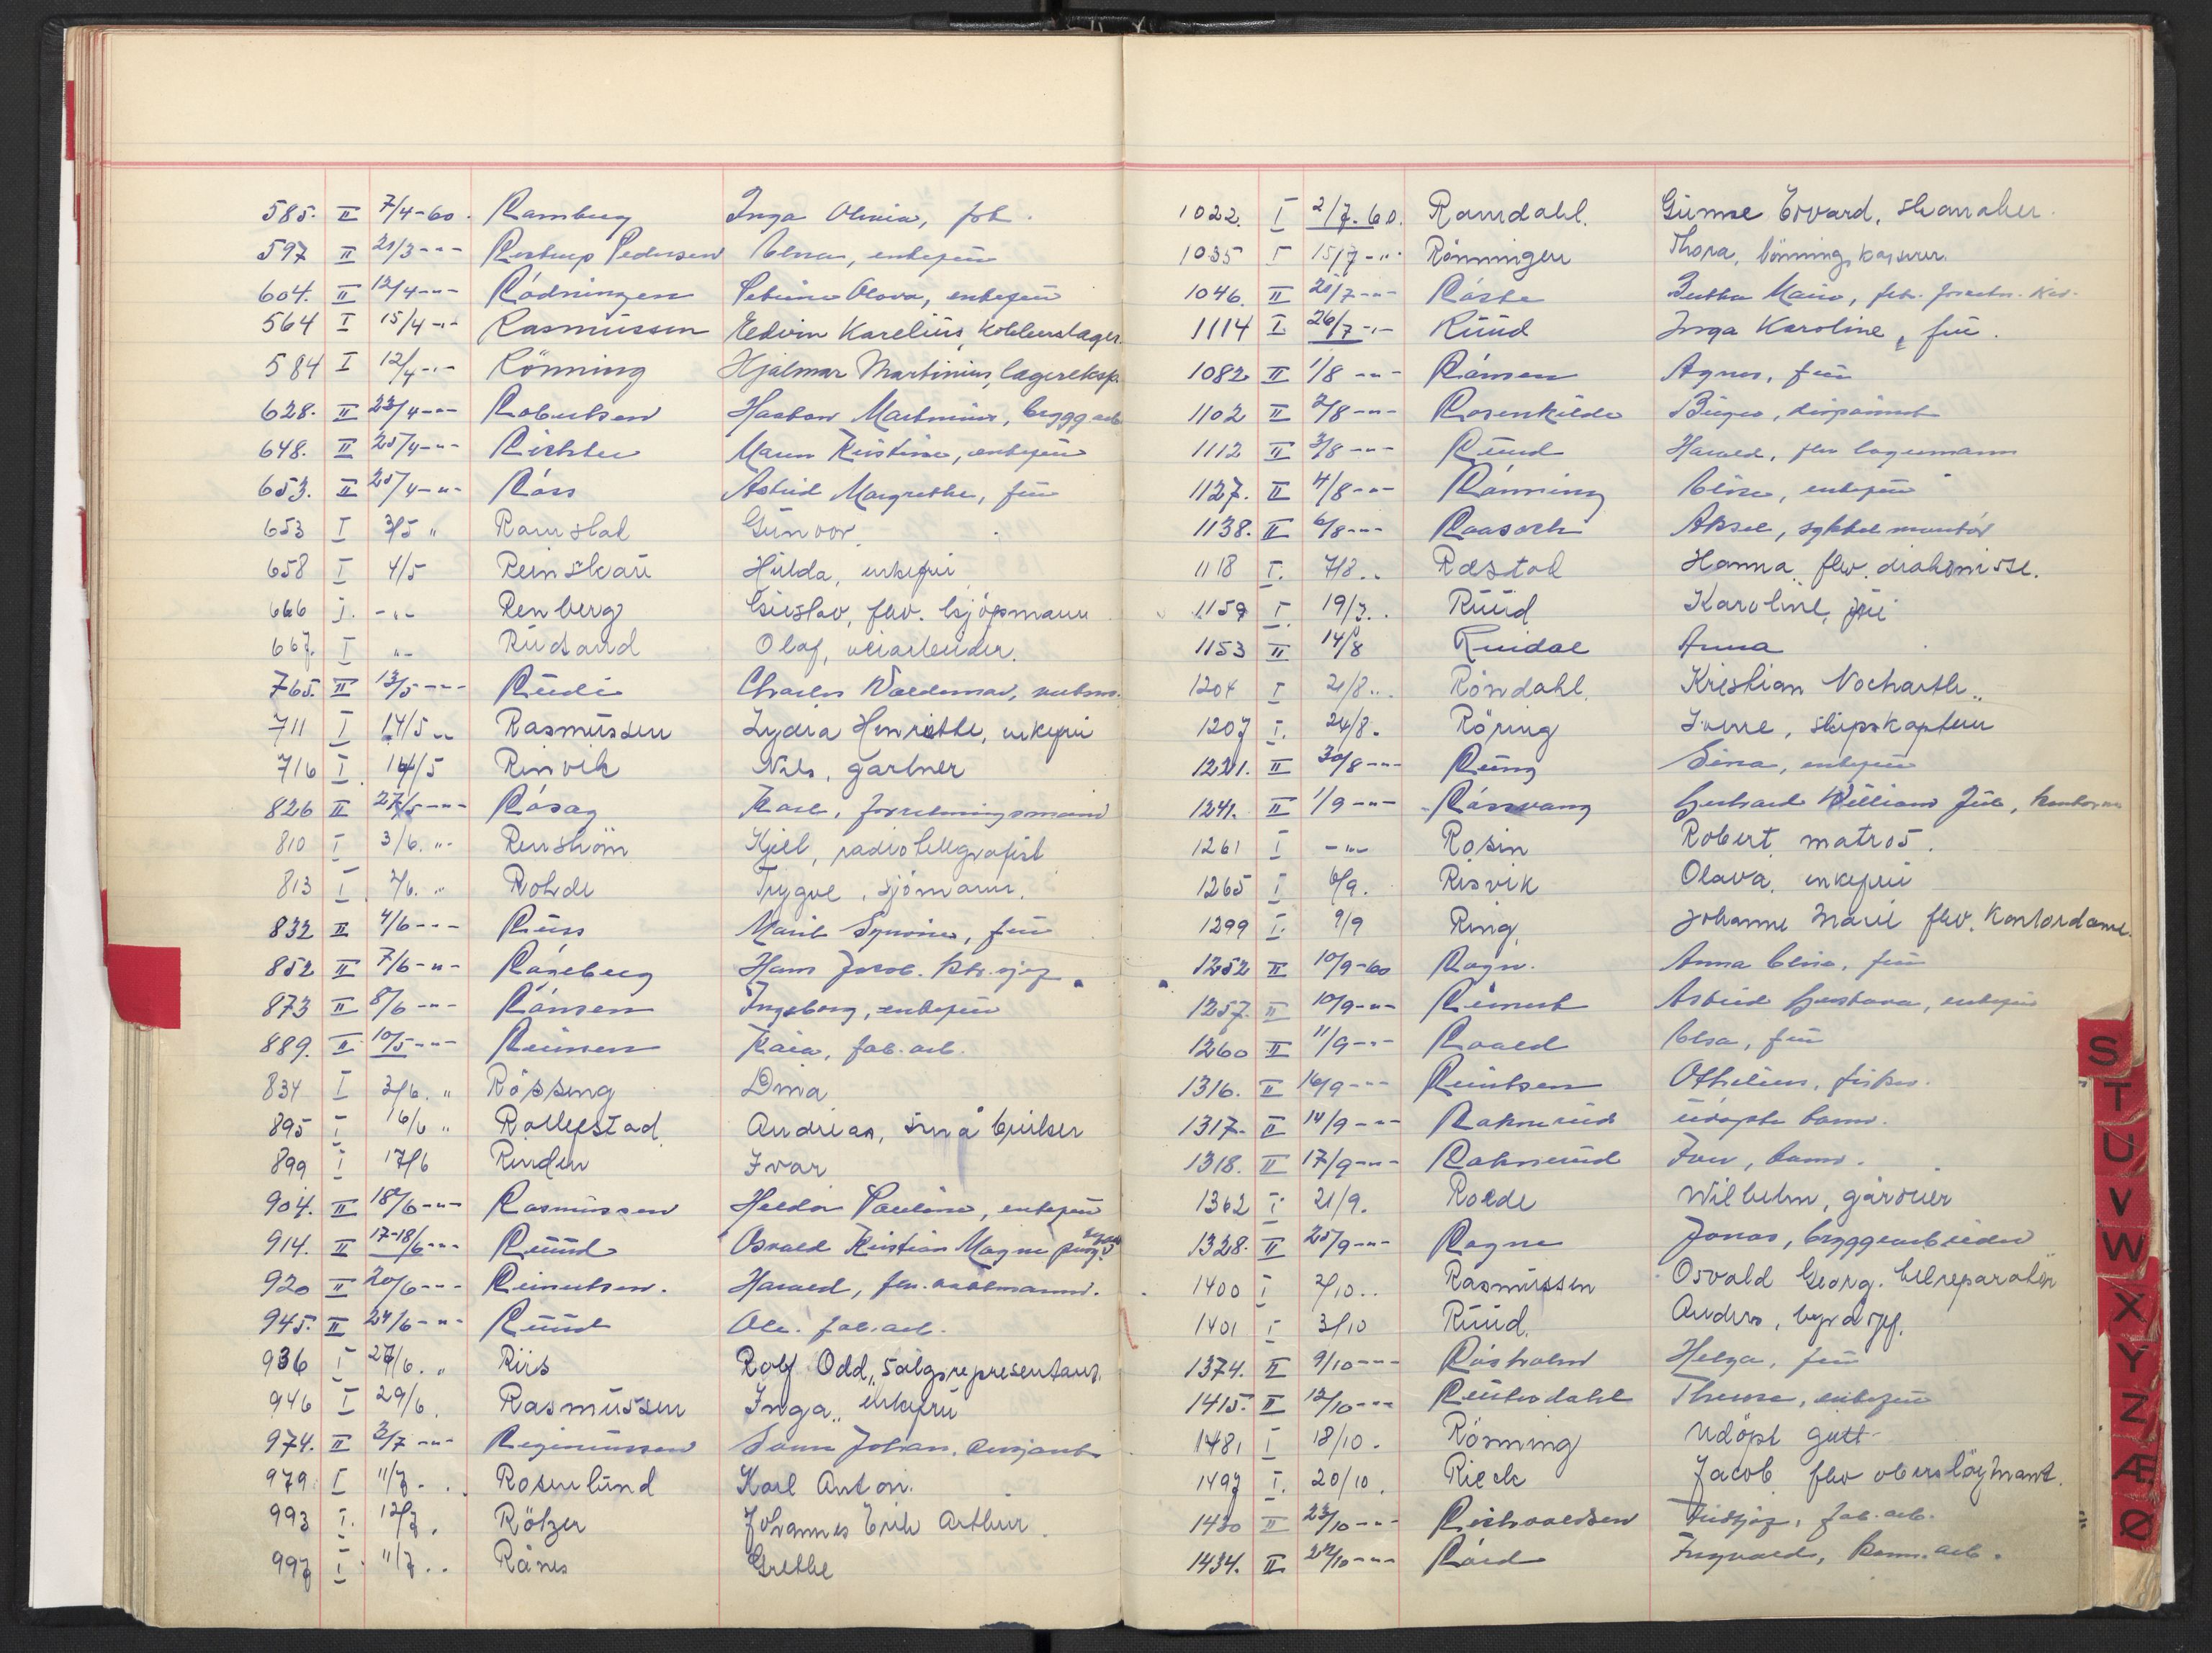 585. II 7/4-60. Ramberg Inga Olivia,
597 II 21/3--- Rostrup Pedersen Elna, enkefrü
604. II 12/4-"- Rödningen Petrine Olava, enkefrü
564 I 15/4-"- Rasmüssen Edvin Karelius,
584 I 12/4-"- Rönning Hjalmar Martinius, lagereksp.
628. II 23/4-"- Robertsen Haakon Martinius, brygg arb
648. II 25/4-"- Richter Maren Kristine, enkefrü
653. II 25/4-"- Röss Astrid Margrethe, frü
653 I 3/5 " Ramstad Günvor
658 I 4/5 Reinskaü Hilda, enkefrü
666 I. -"- Renberg Gustav, fhv. kjöpmann
667. I "- Rüdsand Olaf, veiarbeider.
765. II 13/5--- Rüdi Charles Waldemar,
711 I 14/5 " Rasmüssen Lydia Henriette, enkefrü
716 I. 14/5 Rinvik Nils, gartner
826 II 27/5-"- Rösag Karl, forretningsmann
810 I 3/6. "- Renström Kjell, radiotelegrafist
813 I 2/6. " Rohde Trygve, sjömann.
832 II 4/6--- Rüss Marit Synnöve, frü
852 II 7/6-"- Röneberg Hans Jacob.
873 II 8/6-"- Rönsen Ingeborg, enkefrü
889. II 10/5-"- Reinsen Kaia, fab. arb.
834 I 3/6. " Rössing Dina
895 I 16/6 " Rollefstad Andreas, små brüker
899 I 17/6 Rinden Ivar
904. II 18/6-"- Rasmüssen Helda Pauline, enkefrü
914. II 17-18/6-"- Rüüd Osvald Kristian Magnus
920 II 20/6--- Reinertsen. Harald, fhv.
945. II 24/6-"- Rüüd Ole. fab. arb.
936 I 27/6. " Riis Rolf Odd, salgsrepresentant.
946 I 29/6. Rasmüssen Inga, enkefrü
974. II 2/7-"- Regimüssen Johan,
979. I 11/7- . Rosenlünd Karl Anton.
993 I. 12/7. Rölzer Johannes Erik Arthur.
997 I. 11/7.. Rånes Grethe
1022. I 2/7. 60. Ramdahl. Günne Edvard,
1035 I 15/7-". Rönningen Thora, lönningskasserer.
1046. II 21/7-"- Röste Bertha Marie,
1114 I. 26/7-"- Rüüd Inga Karoline, frü.
1082 II 1/8-"- Rönsen Agnes, frü
1102 II 2/8-"- Rosenkilde Birger, disponent
1112 II 3/8-"- Rüüd Harald, fhv lagermann
1127. II 4/8-"- Rönning Elise, enkefrü
1138. II 6/8-"- Raasoch Aksel, sykkel montör
1118 I. 7/8.. Ræstad Hanna fhv. diakonisse.
1159 I. 19/7.. Rüüd Karoline, frü
1153 II 14/8 Rüidal Anna
1204 I 21/8.. Röndahl. Kristian
1207 I. 24/8. Röring skipskaptein
1221. II 30/8-"- Rüng Sina, enkefrü
1241. II 1/9-"- Rösvang Gerhard William
1261 I -"- Rosin Robert matros.
1265 I 6/9. Risvik Olava, enkefrü
1299 I. 9/9 Ring, Johanne Marie fhv. Kontordame.
1252 II 10/9-60 Rogn. Anna Elise, frü
1257. II 10/9-"- Reinert Astrid Gustava, enkefrü
1260 II 11/9--- Roald Elsa, frü
1316. II 16/9--- Reintsen Othelius, fisker.
1317. II 14/9--- Raknerüd üdöpte barn.
1318. II 17/9-"- Raknerüd Iver, barn.
1362 I. 21/9. Rolde Wilhelm, gårdeier
1328. II 25/9-"- Rogne Jonas, bryggearbeider
1400 I 2/10.. Rasmüssen Osvald Georg.
1401 I 3/10 Rüüd. Anders,
1374. II 9/10--- Rösholm Helga, frü
1415. II 12/10--- Reüterdahl Therese, enkefrü
1481 I 18/10. Rönning Udöpt gütt
1497 I. 20/10. Rieck Jacob fhv oberstlöytnant.
1430 II 23/10--- Richvaldsen Fridtjof, fab. arb.
1434. II 24/10-"- Röed Ingvald, kom. arb.
S
T
U
V
W
X
Y
Z
Æ
Ø